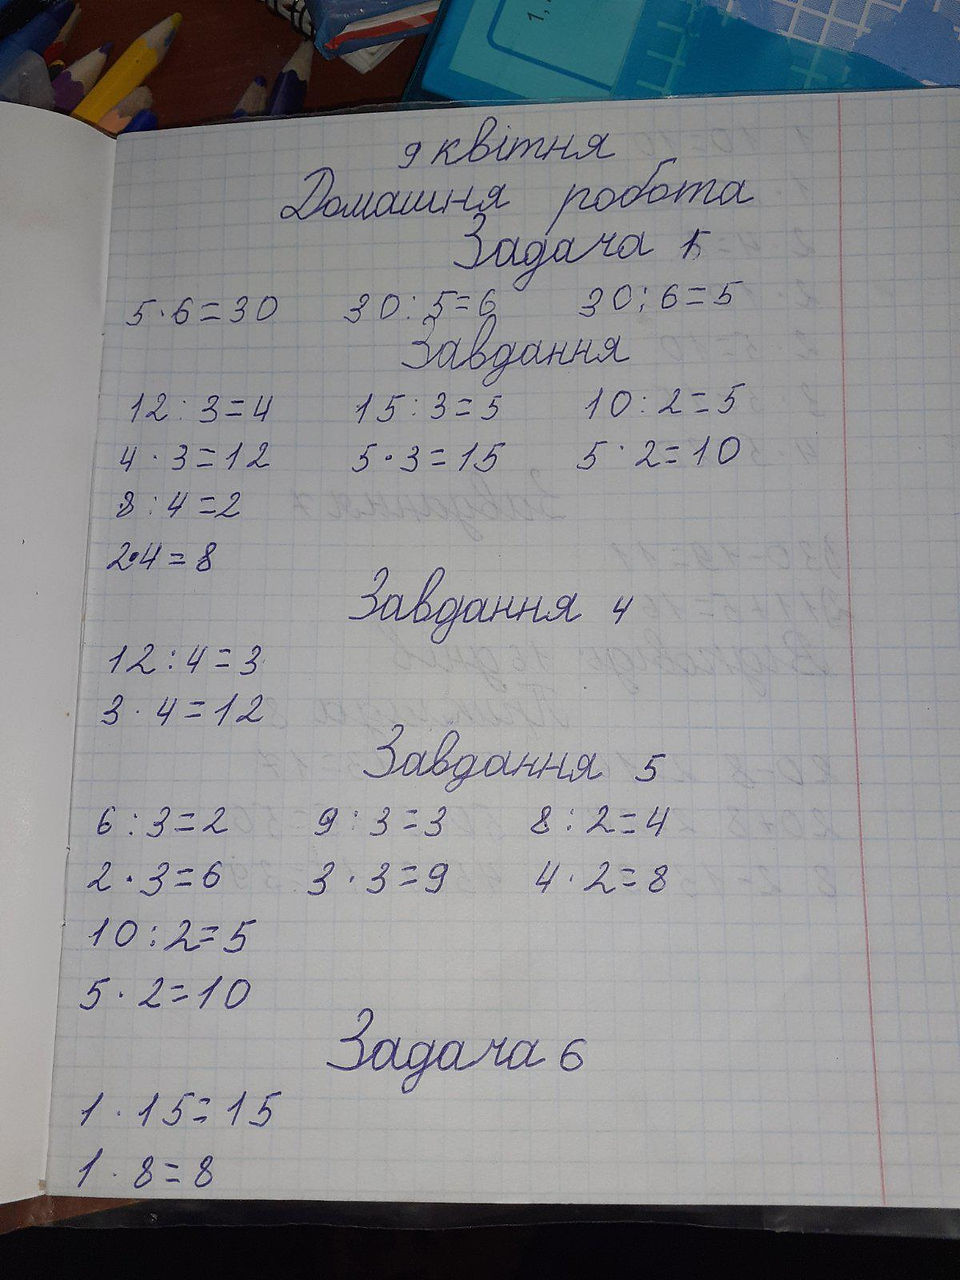 9 квітня
Домашня робота
Задача 1
5·6=30 30:5=6 30:6=5
Завдання
12:3=4 15:3=5 10:2=5
4·3=12 5·3=15 5·2=10
8:4=2
2·4=8
Завдання 4
12:4=3
3·4=12
Завдання 5
6:3=2 9:3=3 8:2=4
2·3=6 3·3=9 4·2=8
10:2=5
5·2=10
Задача 6
1·15=15
1·8=8